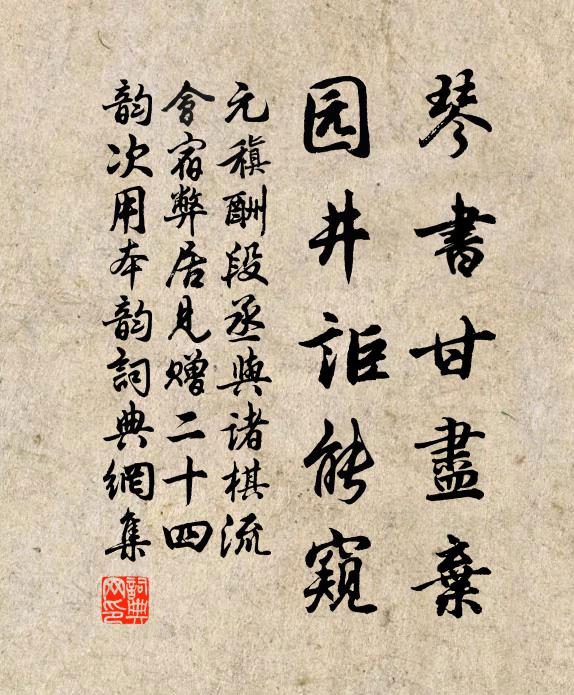 琴書甘盡棄
园井詎能窺
元稹酬段丞與諸棋流
會宿弊居見赠二十四
韵次用本韵詞典網集
詞典网印